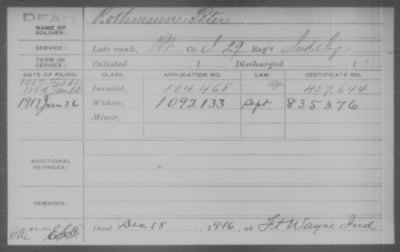 DEAD
NAME OF SOLDIER: Rothmann Peter
SERVICE: Late rank, Pt. Co I 29 Reg't Ind. Inf.
TERM OF SERVICE: Enlisted , 1 Discharged , 1
DATE OF FILING. CLASS. APPLICATION NO. LAW. CERTIFICATE NO.
Invalid, 504,468 457,644
1917 Jan 26 Widow, 1092133 Sept 835376
Minor,
ADDITIONAL SERVICES:
REMARKS:
Died Dec 18 1916, at Ft Wayne Ind.